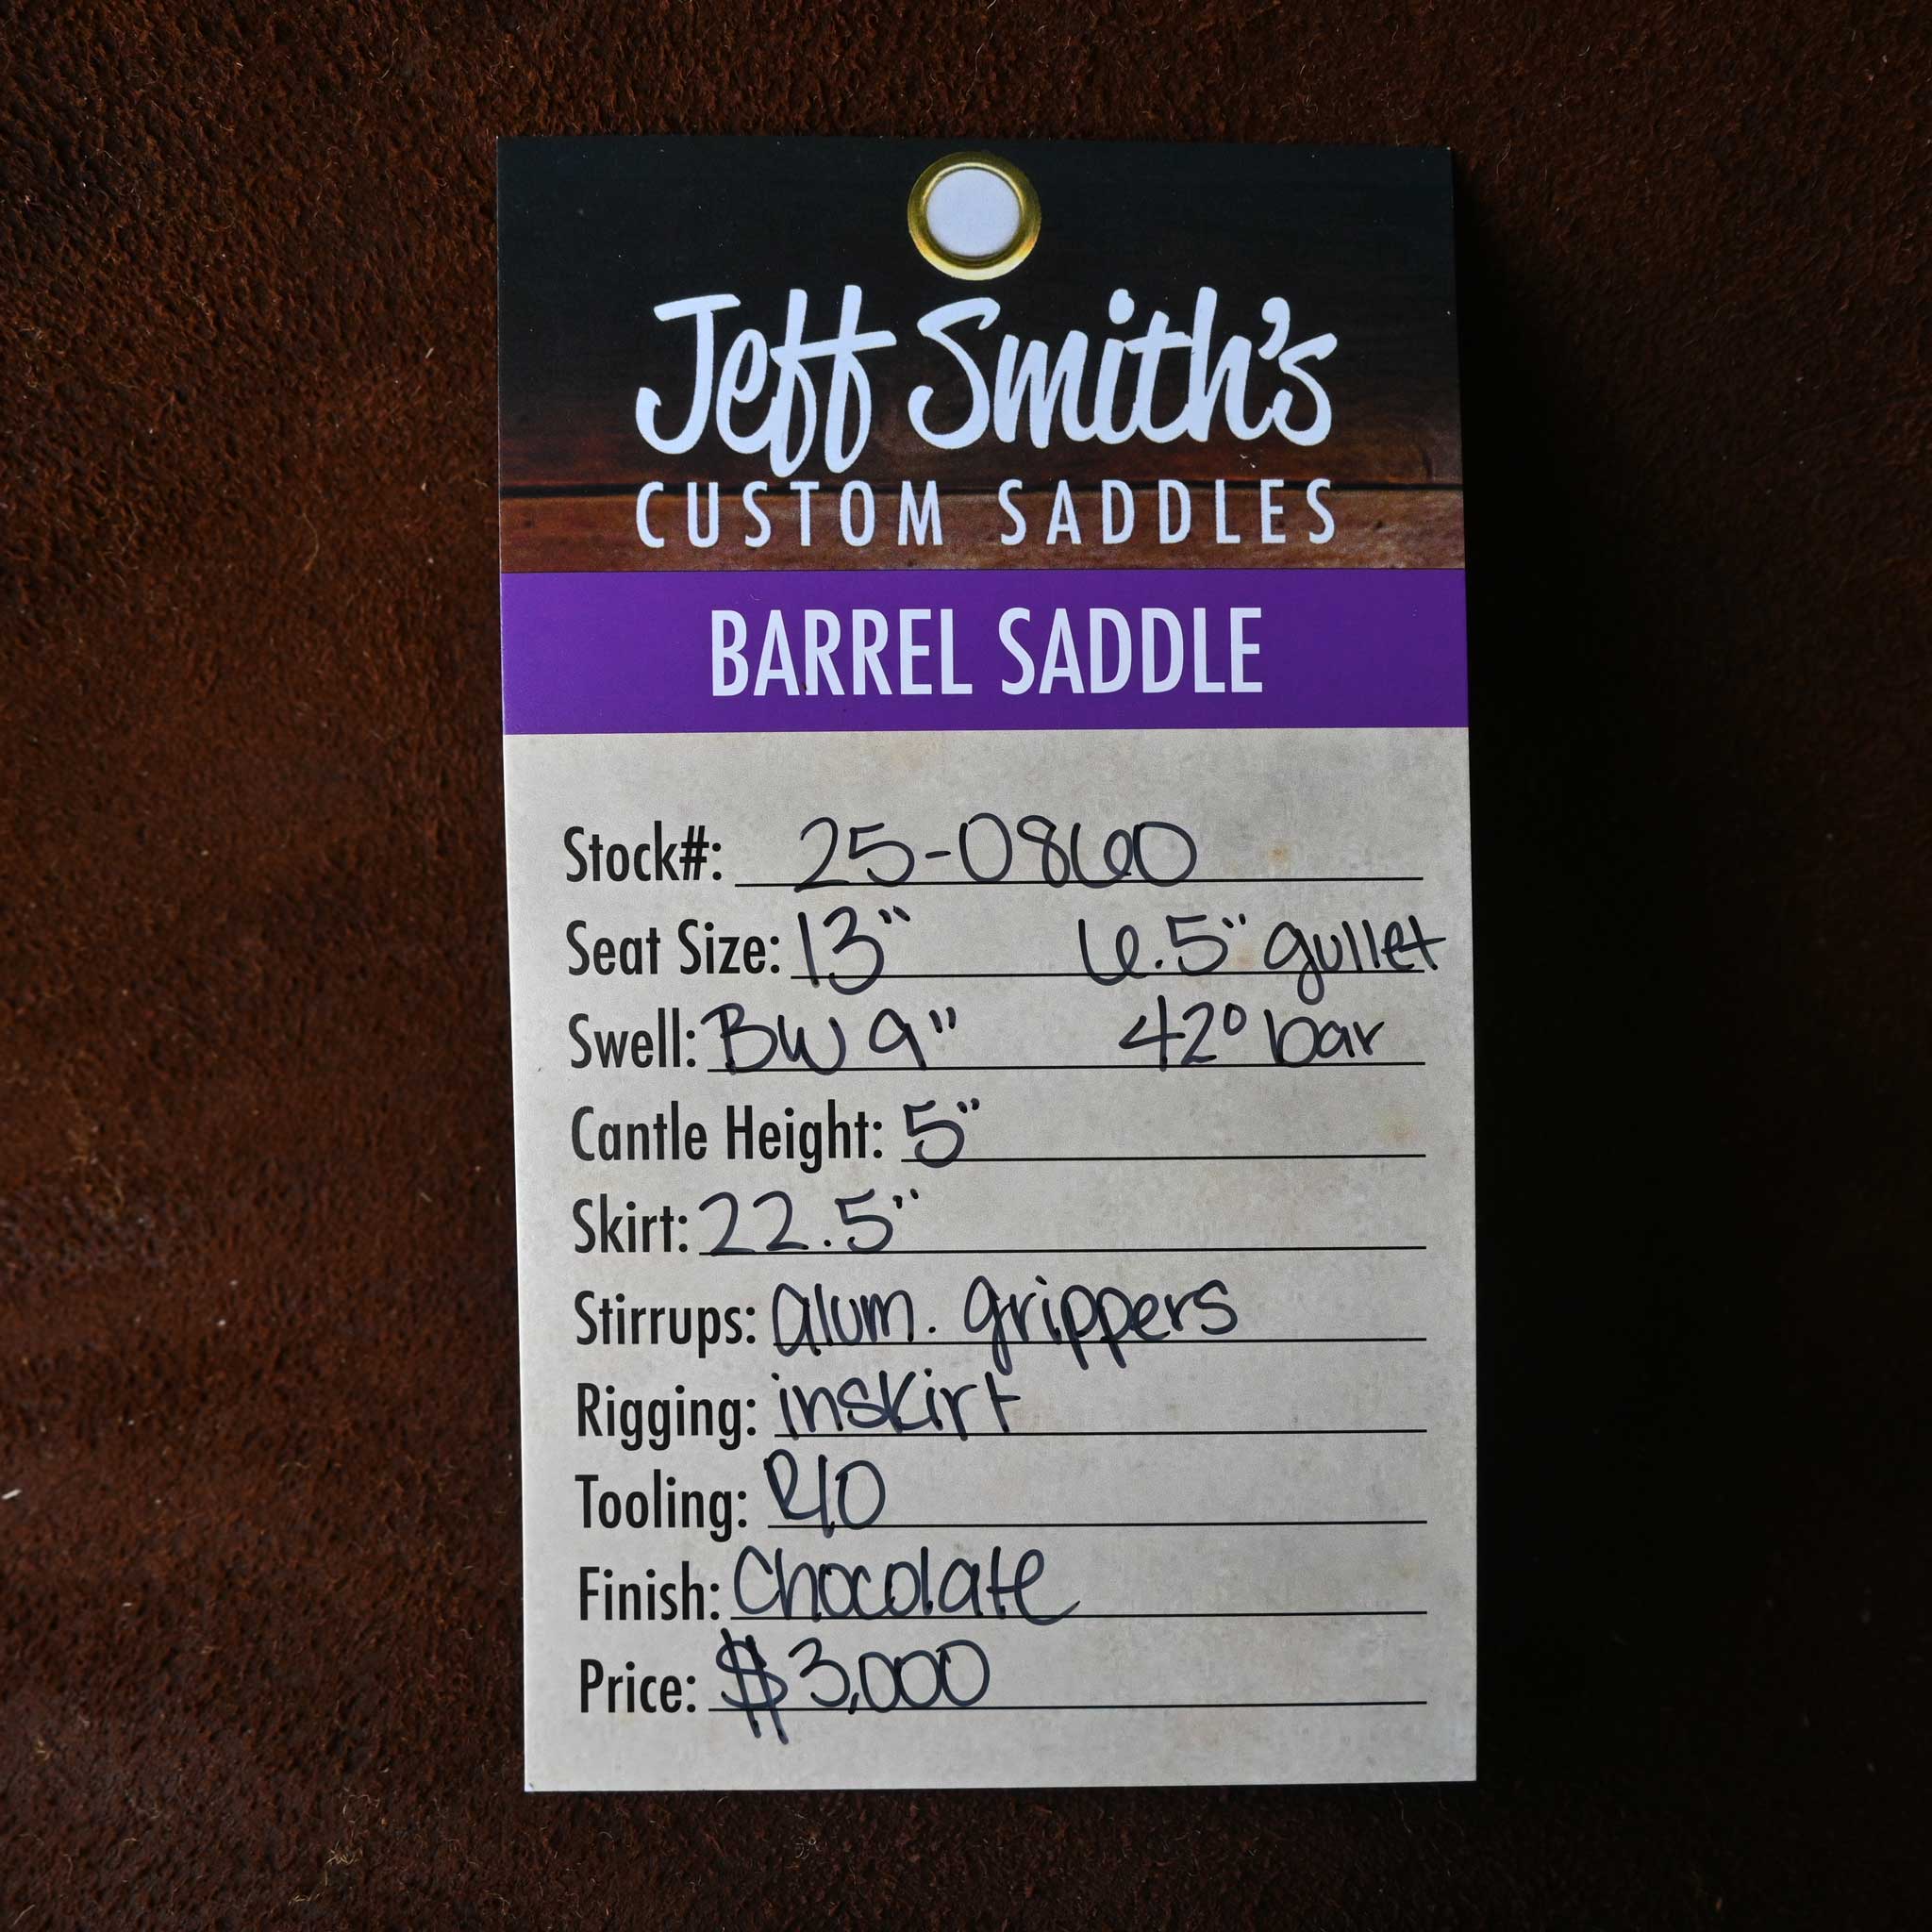 Jeff Smith's
CUSTOM SADDLES
BARREL SADDLE
Stock#: 25-0860
Seat Size: 13" 6.5" gullet
Swell: BW 9" 42° bar
Cantle Height: 5"
Skirt: 22.5"
Stirrups: alum. grippers
Rigging: inskirt
Tooling:
Finish: Chocolate
Price: $3,000